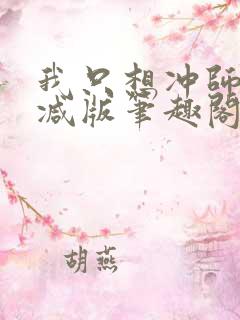 我只想冲师
减版笔趣阁
胡燕